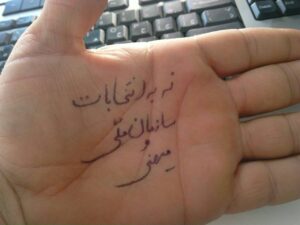 نه به انتخابات
سازمان ملی
و
میهنی